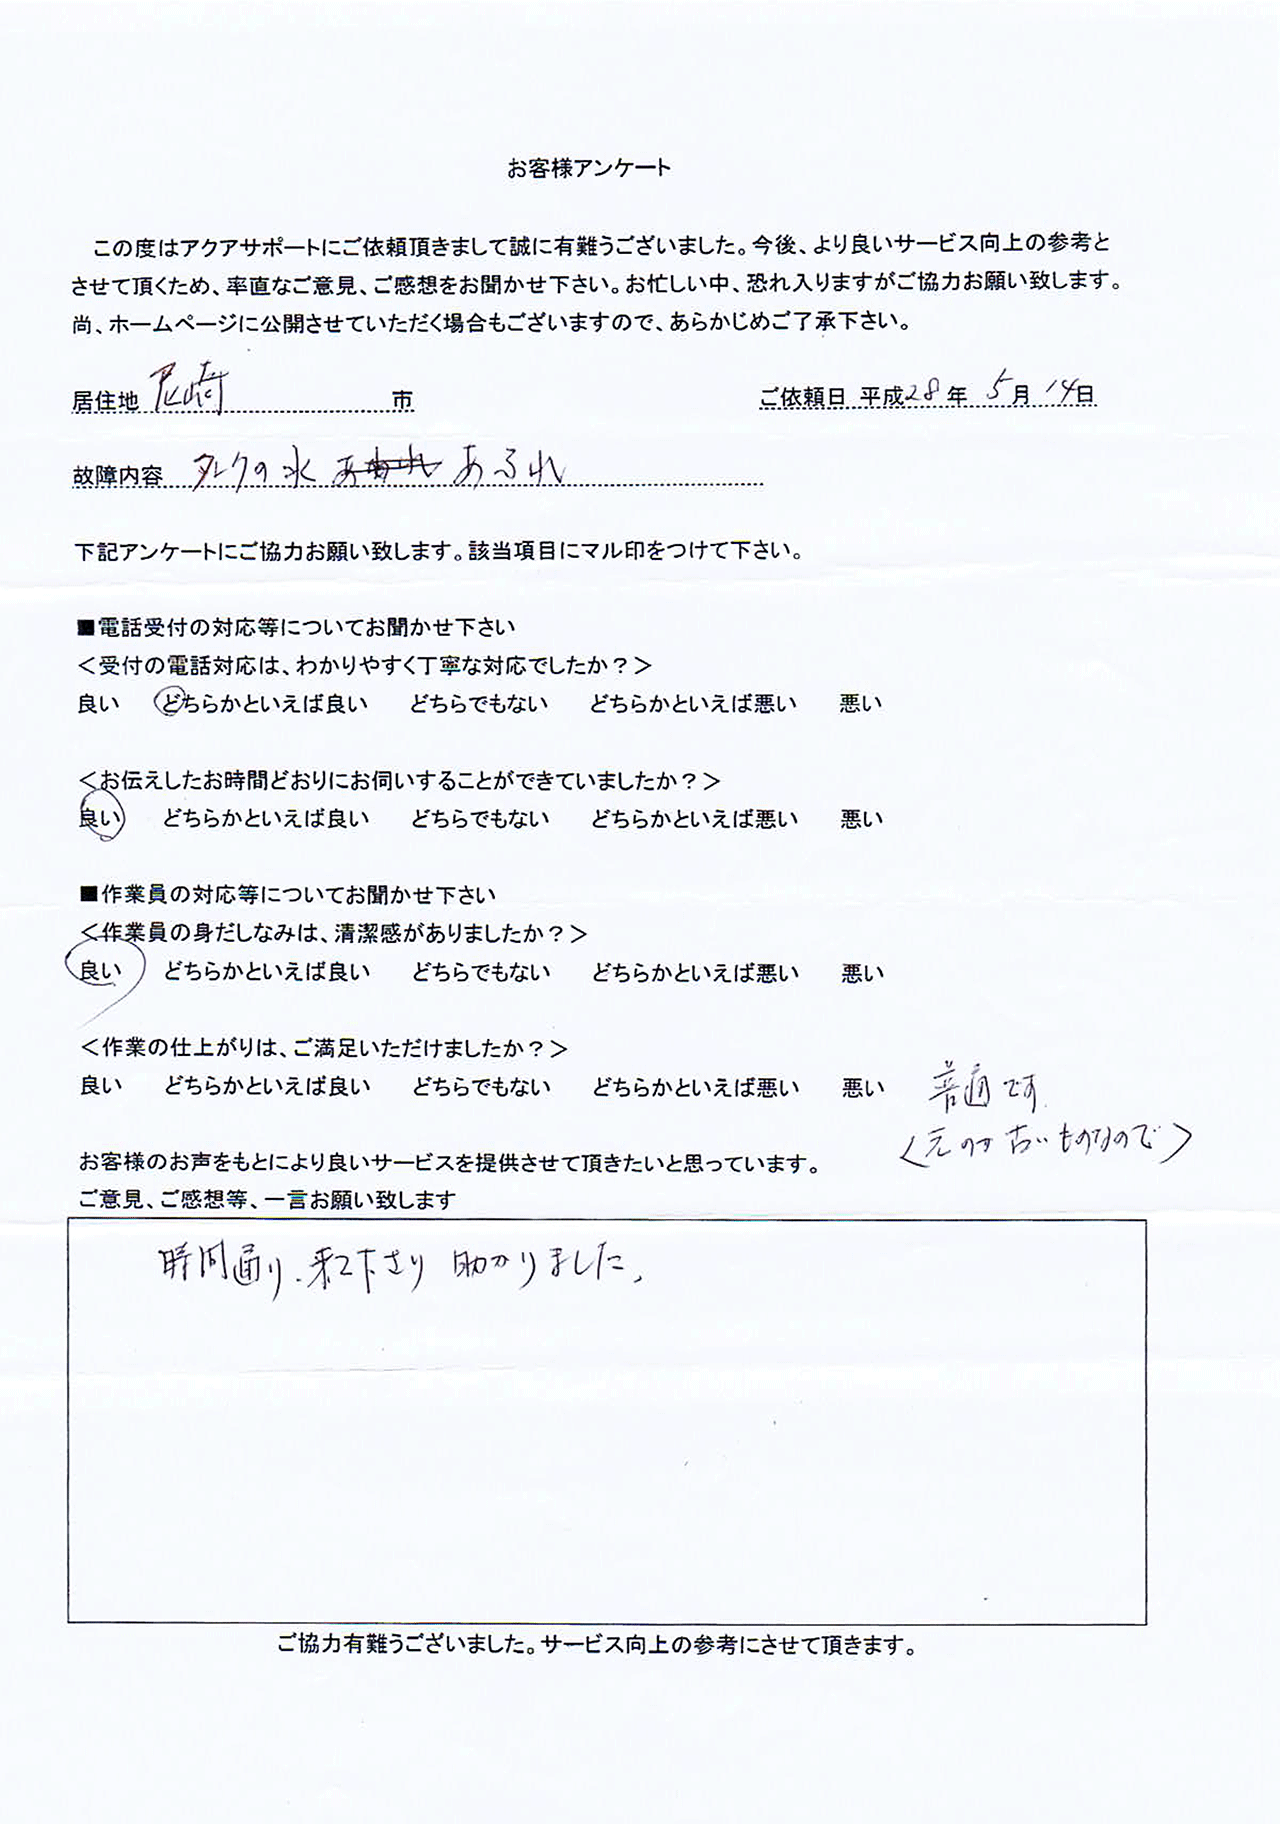 お客様アンケート
この度はアクアサポートにご依頼頂きまして誠に有難うございました。今後、より良いサービス向上の参考と
させて頂くため、率直なご意見、ご感想をお聞かせ下さい。お忙しい中、恐れ入りますがご協力お願い致します。
尚、ホームページに公開させていただく場合もございますので、あらかじめご了承下さい。
居住地 尼崎 市 ご依頼日 平成28年 5月 14日
故障内容 タンクの水 あふれ
下記アンケートにご協力お願い致します。該当項目にマル印をつけて下さい。
■電話受付の対応等についてお聞かせ下さい
＜受付の電話対応は、わかりやすく丁寧な対応でしたか？＞
良い どちらかといえば良い どちらでもない どちらかといえば悪い 悪い
＜お伝えしたお時間どおりにお伺いすることができていましたか？＞
良い どちらかといえば良い どちらでもない どちらかといえば悪い 悪い
■作業員の対応等についてお聞かせ下さい
＜作業員の身だしなみは、清潔感がありましたか？＞
良い どちらかといえば良い どちらでもない どちらかといえば悪い 悪い
＜作業の仕上がりは、ご満足いただけましたか？＞
良い どちらかといえば良い どちらでもない どちらかといえば悪い 悪い 普通です
〈元が古いものなので〉
お客様のお声をもとにより良いサービスを提供させて頂きたいと思っています。
ご意見、ご感想等、一言お願い致します
時間通り、来て下さり 助かりました。
ご協力有難うございました。サービス向上の参考にさせて頂きます。